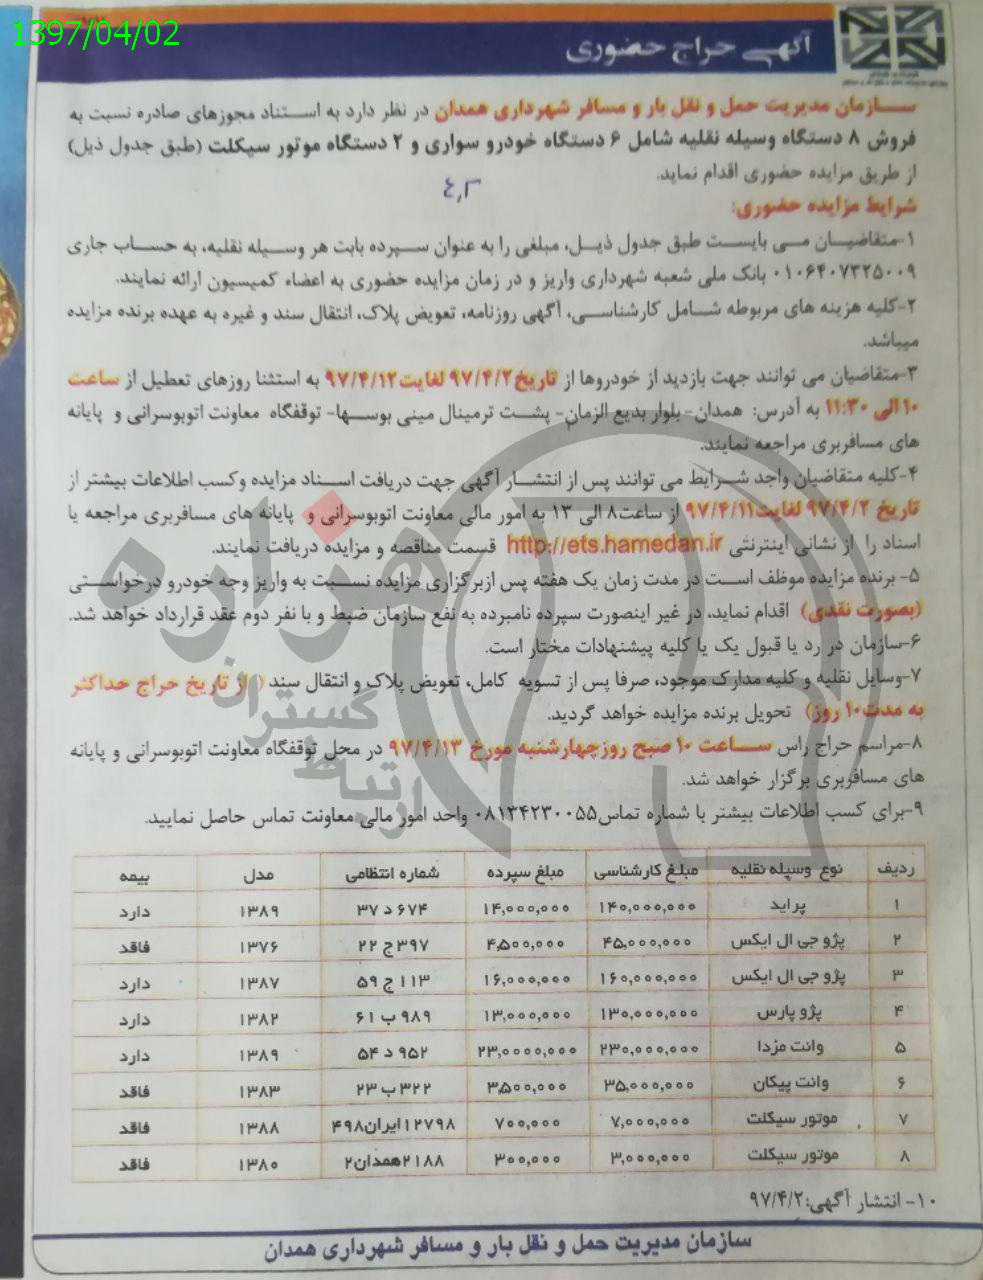 1397/04/02
آگهی حراج حضوری
سازمان مدیریت حمل و نقل بار و مسافر شهرداری همدان در نظر دارد به استناد مجوزهای صادره نسبت به
فروش ۸ دستگاه وسیله نقلیه شامل ۶ دستگاه خودرو سواری و ۲ دستگاه موتور سیکلت (طبق جدول ذیل)
از طریق مزایده حضوری اقدام نماید.
شرایط مزایده حضوری:
۱-متقاضیان می بایست طبق جدول ذیل، مبلغی را به عنوان سپرده بابت هر وسیله نقلیه، به حساب جاری
۰۱۰۶۴۰۷۳۲۵۰۰۹ بانک ملی شعبه شهرداری واریز و در زمان مزایده حضوری به اعضاء کمیسیون ارائه نمایند.
۲-کلیه هزینه های مربوطه شامل کارشناسی، آگهی روزنامه، تعویض پلاک، انتقال سند و غیره به عهده برنده مزایده
میباشد.
۳-متقاضیان می توانند جهت بازدید از خودروها از تاریخ ۹۷/۴/۲ لغایت ۹۷/۴/۱۲ به استثنا روزهای تعطیل از ساعت
۱۰ الی ۱۱:۳۰ به آدرس: همدان- بلوار بدیع الزمان- پشت ترمینال مینی بوسها- توقفگاه معاونت اتوبوسرانی و پایانه
های مسافربری مراجعه نمایند.
۴-کلیه متقاضیان واجد شرایط می توانند پس از انتشار آگهی جهت دریافت اسناد مزایده وکسب اطلاعات بیشتر از
تاریخ ۹۷/۴/۲ لغایت ۹۷/۴/۱۱ از ساعت ۸ الی ۱۳ به امور مالی معاونت اتوبوسرانی و پایانه های مسافربری مراجعه یا
اسناد را از نشانی اینترنتی http://ets.hamedan.ir قسمت مناقصه و مزایده دریافت نمایند.
۵- برنده مزایده موظف است در مدت زمان یک هفته پس ازبرگزاری مزایده نسبت به واریز وجه خودرو درخواستی
(بصورت نقدی) اقدام نماید، در غیر اینصورت سپرده نامبرده به نفع سازمان ضبط و با نفر دوم عقد قرارداد خواهد شد.
۶-سازمان در رد یا قبول یک یا کلیه پیشنهادات مختار است.
۷-وسایل نقلیه و کلیه مدارک موجود، صرفا پس از تسویه کامل، تعویض پلاک و انتقال سند ( از تاریخ حراج حداکثر
به مدت ۱۰ روز) تحویل برنده مزایده خواهد گردید.
۸-مراسم حراج راس ساعت ۱۰ صبح روزچهارشنبه مورخ ۹۷/۴/۱۳ در محل توقفگاه معاونت اتوبوسرانی و پایانه
های مسافربری برگزار خواهد شد.
۹-برای کسب اطلاعات بیشتر با شماره تماس ۰۸۱۳۴۲۳۰۰۵۵ واحد امور مالی معاونت تماس حاصل نمایید.
ردیف نوع وسیله نقلیه مبلغ کارشناسی مبلغ سپرده شماره انتظامی مدل بیمه
۱ پراید ۱۴۰,۰۰۰,۰۰۰ ۱۴,۰۰۰,۰۰۰ ۶۷۴ د ۳۷ ۱۳۸۹ دارد
۲ پژو جی ال ایکس ۴۵,۰۰۰,۰۰۰ ۴,۵۰۰,۰۰۰ ۳۹۷ ج ۲۲ ۱۳۷۶ فاقد
۳ پژو جی ال ایکس ۱۶۰,۰۰۰,۰۰۰ ۱۶,۰۰۰,۰۰۰ ۱۱۳ ج ۵۹ ۱۳۸۷ دارد
۴ پژو پارس ۱۳۰,۰۰۰,۰۰۰ ۱۳,۰۰۰,۰۰۰ ۹۸۹ ب ۶۱ ۱۳۸۲ دارد
۵ وانت مزدا ۲۳۰,۰۰۰,۰۰۰ ۲۳,۰۰۰۰,۰۰۰ ۹۵۲ د ۵۴ ۱۳۸۹ دارد
۶ وانت پیکان ۳۵,۰۰۰,۰۰۰ ۳,۵۰۰,۰۰۰ ۳۲۲ ب ۲۳ ۱۳۸۳ فاقد
۷ موتور سیکلت ۷,۰۰۰,۰۰۰ ۷۰۰,۰۰۰ ۱۲۷۹۸ ایران ۴۹۸ ۱۳۸۸ فاقد
۸ موتور سیکلت ۳,۰۰۰,۰۰۰ ۳۰۰,۰۰۰ ۲۱۸۸ همدان ۲ ۱۳۸۰ فاقد
۱۰- انتشار آگهی: ۹۷/۴/۲
سازمان مدیریت حمل و نقل بار و مسافر شهرداری همدان
هزاره
گستران
ارتباط